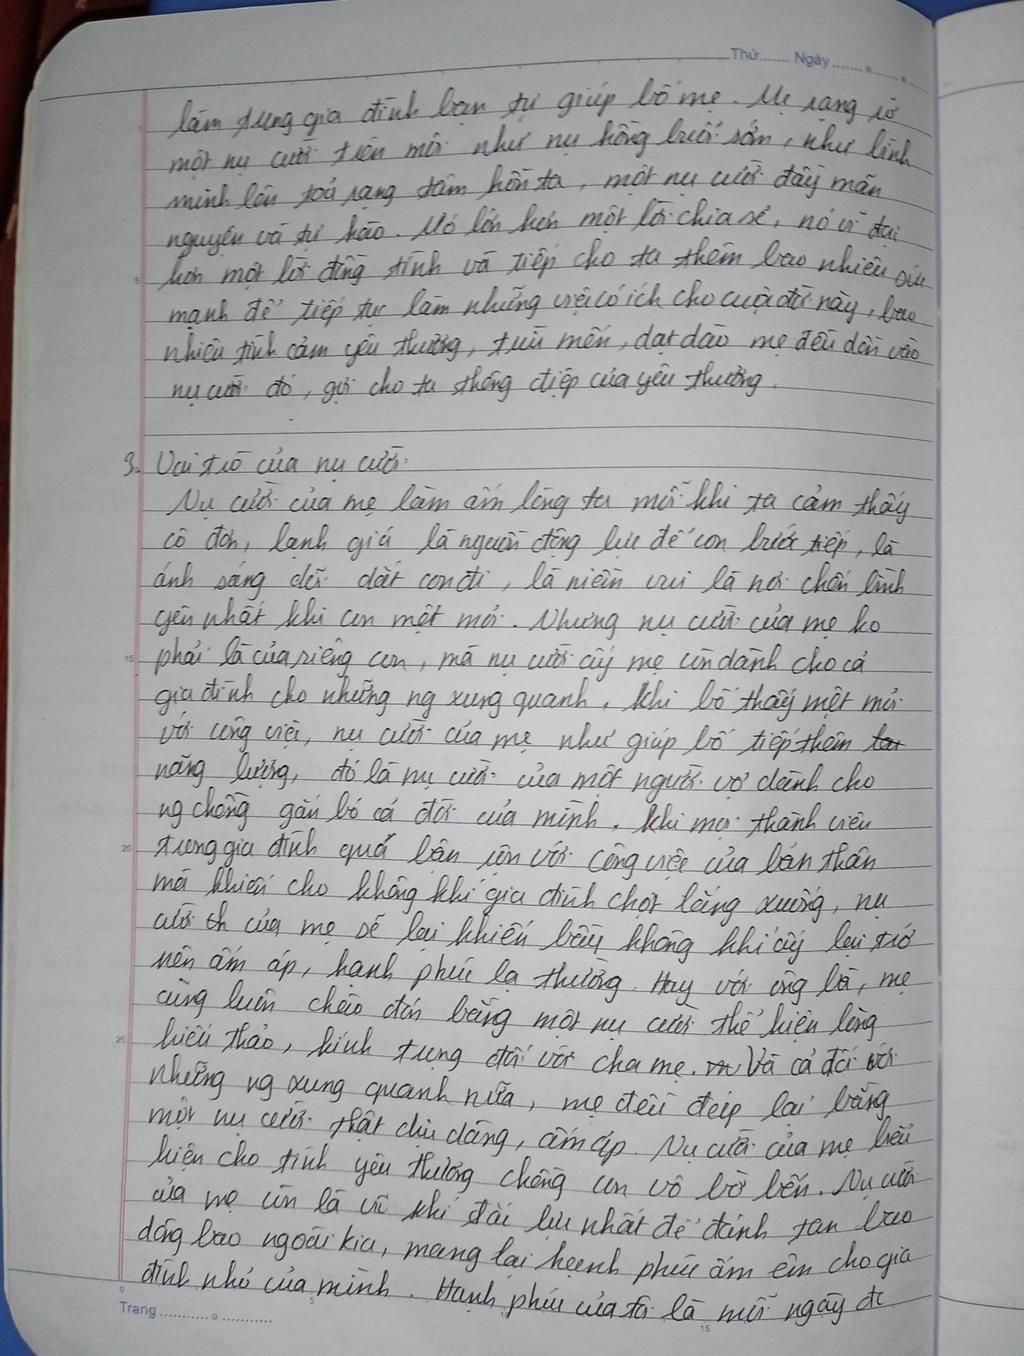 Thứ....... Ngày ............
làm trong gia đình bạn tự giúp bố mẹ. Mẹ rạng rỡ
một nụ cười tiên môi như nụ hồng buổi sớm, như bình
minh lên toả rạng tâm hồn ta, một nụ cười đầy mãn
nguyện và tự hào. Nó lớn hơn một lời chia sẻ, nó vĩ đại
hơn một lời đồng tình và tiếp cho ta thêm bao nhiêu sức
mạnh để tiếp tục làm những việc có ích cho cuộc đời này, bao
nhiêu tình cảm yêu thương, trìu mến, dạt dào mẹ đều dồn vào
nụ cười đó, gửi cho ta thông điệp của yêu thương.
3. Vai trò của nụ cười
Nụ cười của mẹ làm ấm lòng ta mỗi khi ta cảm thấy
cô đơn, lạnh giá là nguồn động lực để con bước tiếp, là
ánh sáng dẫn dắt con đi, là niềm vui là nơi chốn bình
yên nhất khi con mệt mỏi. Nhưng nụ cười của mẹ ko
phải là của riêng con, mà nụ cười ấy mẹ còn dành cho cả
gia đình cho những ng xung quanh. Khi bố thấy mệt mỏi
với công việc, nụ cười của mẹ như giúp bố tiếp thêm
năng lượng, đó là nụ cười của một người vợ dành cho
ng chồng gắn bó cả đời của mình. Khi mọi thành viên
trong gia đình quá bận rộn với công việc của bản thân
mà khiến cho không khí gia đình chợt lắng xuống, nụ
cười của mẹ sẽ lại khiến bầu không khí ấy lại trở
nên ấm áp, hạnh phúc lạ thường. Hay với ông bà, mẹ
cũng luôn chào đón bằng một nụ cười thể hiện lòng
hiếu thảo, kính trọng đối với cha mẹ. Và cả đối với
những ng xung quanh nữa, mẹ đều đáp lại bằng
một nụ cười thật dịu dàng, ấm áp. Nụ cười của mẹ biểu
hiện cho tình yêu thương chồng con vô bờ bến. Nụ cười
của mẹ còn là vũ khí đắc lực nhất để đánh tan bao
dông bão ngoài kia, mang lại hạnh phúc ấm êm cho gia
đình nhỏ của mình. Hạnh phúc của tôi là mỗi ngày đc
Trang ............